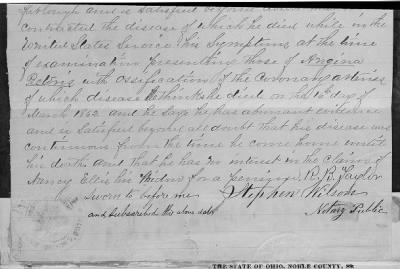 furlough and is satisfied beyond
contracted the disease of which he died while in the
United States Service his Symptoms at the time
of examination presenting those of Angina
Pectoris with Ossification of the Coronary arteries
of which disease he thinks he died on the 1st day of
March 1862 and he says he has abundant evidence
and is Satisfied beyond all doubt that his disease was
continuous from the time he come home untill
his death and that he has no interest in the Claim of
Nancy Ellis his Widow for a pension. R. R. Taylor
Sworn to before me Stephen Wilson
and subscribed the above date Notary Public
THE STATE OF OHIO, NOBLE COUNTY, SS